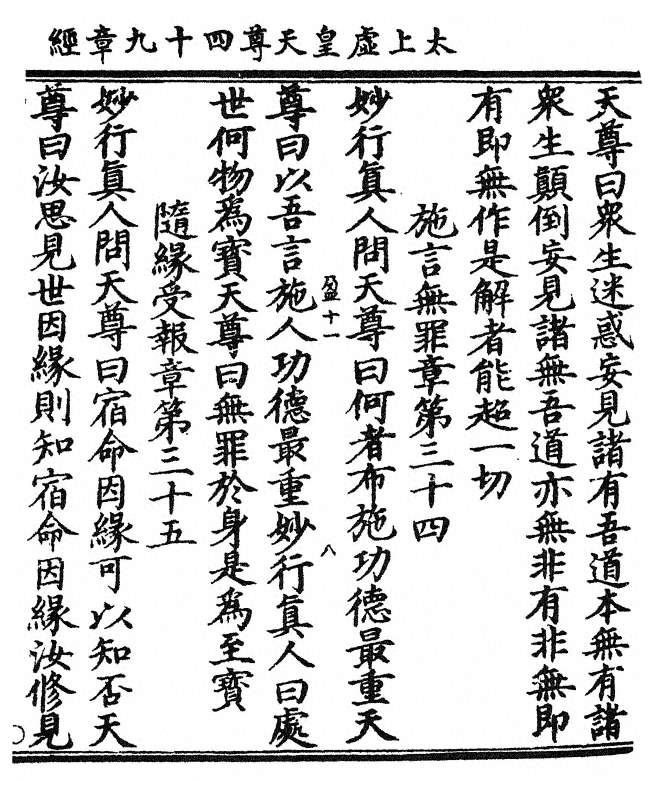 太上虛皇天尊四十九章經
天尊曰衆生迷惑妄見諸有吾道本無有諸
衆生顛倒妄見諸無吾道亦無非有非無即
有即無作是解者能超一切
施言無罪章第三十四
妙行眞人問天尊曰何者布施功德最重天
盈十一
八
尊曰以吾言施人功德最重妙行眞人曰處
世何物爲寶天尊曰無罪於身是爲至寶
隨緣受報章第三十五
妙行眞人問天尊曰宿命因緣可以知否天
尊曰汝思見世因緣則知宿命因緣汝修見